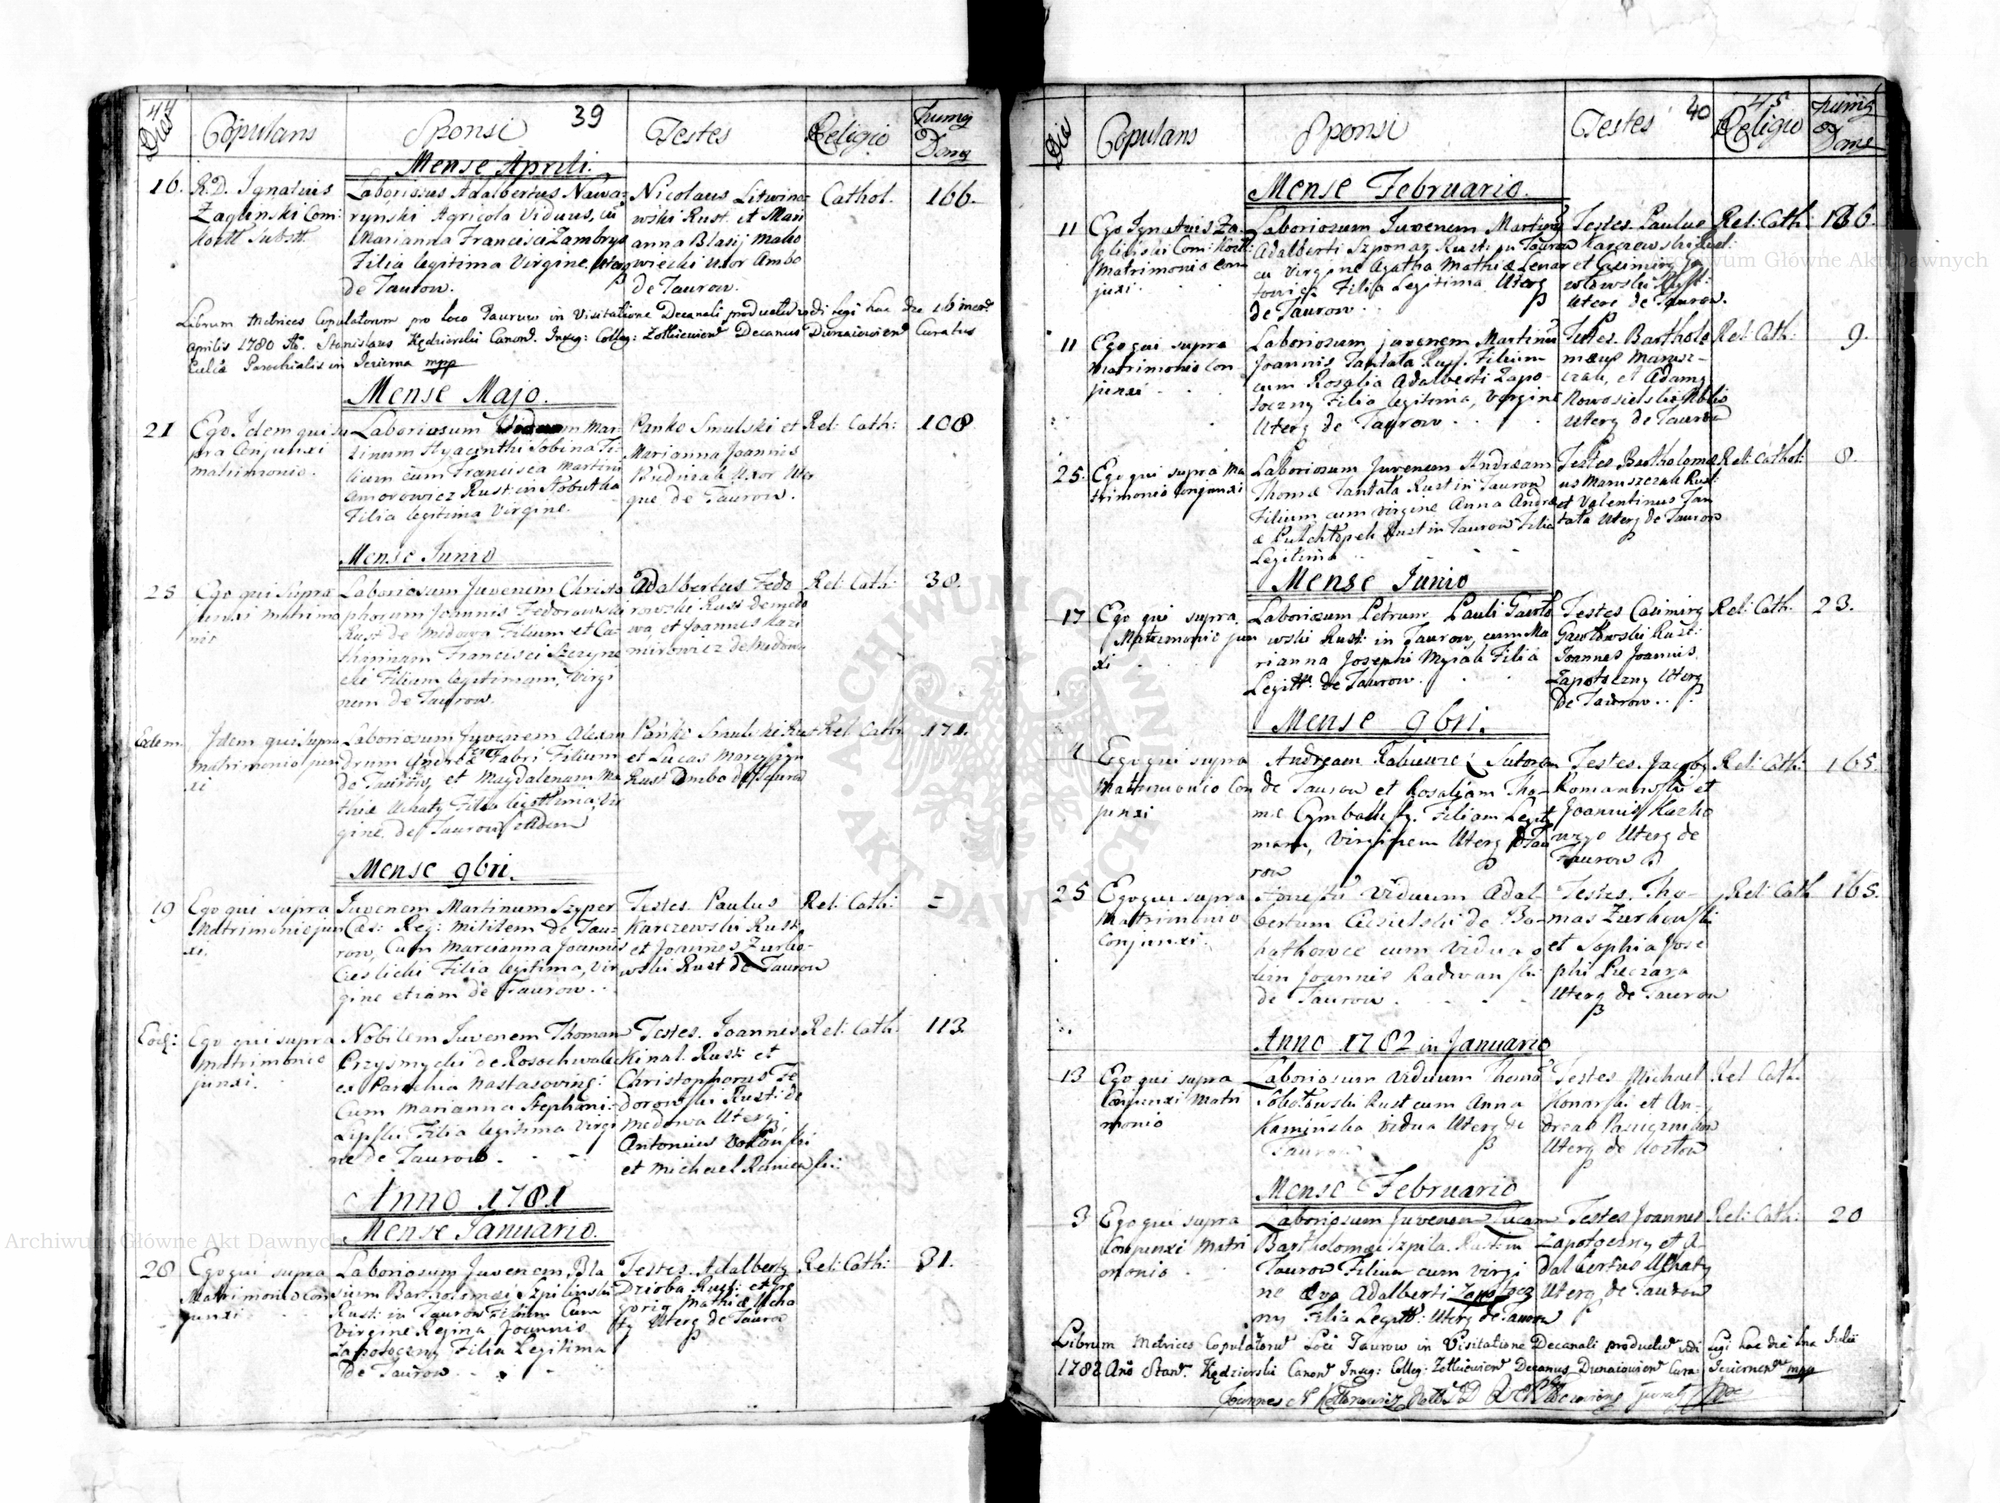 44
39
Dies
Copulans
Sponsi
Testes
Religio
Numq
Domq
Mense Aprili.
16.
R.D. Ignatius
Zaglinski Com:
Laboriosus Adalbertus Nawa-
rynski Agricola Viduus, cu
Marianna Francisci Zambryo
Filia legitima Virgine
de Taurow.
Nicolaus Litwino-
wski Rust. et Mari
anna Blasij Mako
wiecki uxor Ambo
de Taurow.
Cathol.
166.
Librum Metrices Copulatorum pro loco Taurow in Visitatione Decanali productu vidi legi hac die 16 mens
Aprilis 1780 Ao. Stanislaus Kędzierski Canon. Insig: Colleg: Zolkiewien Decanus Dunaiowien Curatus
Parochialis in Jezierna mpp
Mense Majo.
21
Ego Idem qui su
pra Conjunxi
matrimonio.
Laboriosum Viduum Mar-
tinum Hyacinthi Sobina Fi-
lium cum Francisca Martini
Amorowicz Rust. in
Filia legitima Virgine.
Panko Smulski et
Marianna Joannis
Budniak Uxor Uter
que de Taurow.
Rel: Cath:
108
Mense Junio
25
Ego qui supra
junxi matrimo
nio
Laboriosum Juvenem Christo
phorum Joannis Fedorowski
Rust de Medowa Filium et Ca-
tharinam Francisci Szczyne
cki Filiam legitimam, Virgi
nem de Taurow.
Adalbertus Fedo
rowski Rust de medo
wa, et Joannes Kazi
mirowicz de Medowa
Rel: Cath:
38.
Eadem.
Idem qui supra
Matrimonio jun
xi
Laboriosum Juvenem Alexan
drum Andrea Fabri Filium
de Taurow, et Magdalenam Ma
thiæ Uchaty Filia legittima, Vir
gine de Taurow
Panko Smulski Rust
et Lucas
Rust Ambo de Taurow
Rel: Cath:
171.
Mense 9bri.
19
Ego qui supra
Matrimonio jun
xi.
Juvenem Martinum Szyper
Cæs: Reg: Militem de Tau-
row, Cum Marianna Joannis
Cieslicki Filia legitima, Vir
gine etiam de Taurow.
Testes. Paulus
Karczewski Rust
et Joannes Zurko-
wski Rust de Taurow
Rel: Cath:
=
Eod:
Ego qui supra
matrimonio
junxi.
Nobilem Juvenem Thomam
Przysmycki de Rosochwaciec
ex Parochia Nastasoving:
Cum Marianna Stephani
Lipski Filia legitima Virgi
ne de Taurow.
Testes. Joannes
Kinal. Rust: et
Christophorus Fe
dorowski Rust: de
Medowa Uterq;
Antonius
et Michael
Rel: Cath:
113
Anno 1781
Mense Januario.
28
Ego qui supra
Matrimonio Con
junxi
Laboriosum Juvenem Bla
sium Bartholomæi Szpilinski
Rust: in Taurow Filium Cum
Virgine Regina Joannis
Zapotoczny Filia Legitima
De Taurow.
Testes. Adalbertq
Dzioba Rust: et Gre
gorig Mathiæ Ucha
ty Uterq de Taurow
Rel: Cath:
31.
45
40
Dies
Copulans
Sponsi
Testes
Religio
Numq
Domq
Mense Februario.
11
Ego Ignatius Za-
gliński Com:
Matrimonio con
junxi.
Laboriosum Juvenem Martinu
Adalberti Szponar Rust: in Taurow
cu Virgine Agatha Mathiæ Lewar
towicz Filia Legitima Uterq
de Taurow.
Testes. Paulus
Karczewski Rust:
et Casimirq
Rust:
Uterq de Taurow.
Rel: Cath:
166.
11
Ego qui supra
Matrimonio Con
junxi
Laboriosum juvenem Martinu
Joannis Tantala Rust. Filium
cum Rosalia Adalberti Zapo-
toczny Filia legitima, Virgine
Uterq de Taurow.
Testes. Bartholo
mæus Marusz-
czak, et Adamq
Nowosielski Nobilis
Uterq de Taurow
Rel: Cath:
9.
25.
Ego qui supra Ma
trimonio conjunxi
Laboriosum Juvenem Andream
Thomæ Tantala Rust in Taurow
Filium cum virgine Anna Andre
æ Rust in Taurow Filia
Legitima
Testes Bartholomæ
us Maruszczak Rust:
et Valentinus Tan
tala Uterq de Taurow
Rel: Cathol:
8.
Mense Junio
17
Ego qui supra
Matrimonio jun
xi
Laboriosum Petrum Pauli Gawlo
wski Rust: in Taurow, cum Ma
rianna Josephi Mysak Filia
Legitt. de Taurow.
Testes Casimirq
Gawlowski Rust:
Joannes Joannis
Zapotoczny Uterq
De Taurow.
Rel: Cath:
23.
Mense 9bri.
4
Ego qui supra
Matrimonio Con
junxi
Andream Rabiewicz Sutorem
de Taurow et Rosaliam Tho-
mæ Filiam Legit
mam, Virginem Uterq De Tau
row
Testes. Jacobq
Romanowski et
Joannis
Uterq de
Taurow
Rel: Cath:
165.
25
Ego qui supra
Matrimonio
Conjunxi.
Viduum Adal
bertum Ciesielski de
cum Vidua
Joannis Radwanski
de Taurow.
Testes. Tho-
mas Zurkowski
et Sophia Jose
phi Puczara
Uterq de Taurow
Rel: Cath
165.
Anno 1782 in Januario
13
Ego qui supra
Conjunxi Matri
monio
Laboriosum Viduum Thomā
Sobolewski Rust cum Anna
Kaminska Vidua Uterq de
Taurow
Testes Michael
Konarski et An-
dreas
Uterq de
Rel: Cath.
Mense Februario
3
Ego qui supra
Conjunxi Matri
monio
Laboriosum Juvenem Lucam
Bartholomæi Szpila. Rust: in
Taurow Filium cum virgi
ne Eva Adalberti Zapotocz
ny Filia Legitt: Uterq de Taurow
Testes Joannes
Zapotoczny et A-
dalbertus Uchaty
Uterq de Taurow
Rel: Cath:
20
Librum Metrices Copulatorum Loci Taurow in Visitatione Decanali productu vidi legi hac die Julii
1782 Anō Stan. Kędzierski Canon Insig: Colleg: Zolkiewien Decanus Dunaiowien Cura: Jeziernen mpp
Archiwum Główne Akt Dawnych
Archiwum Główne Akt Dawnych
ARCHIWUM GŁÓWNE AKT DAWNYCH